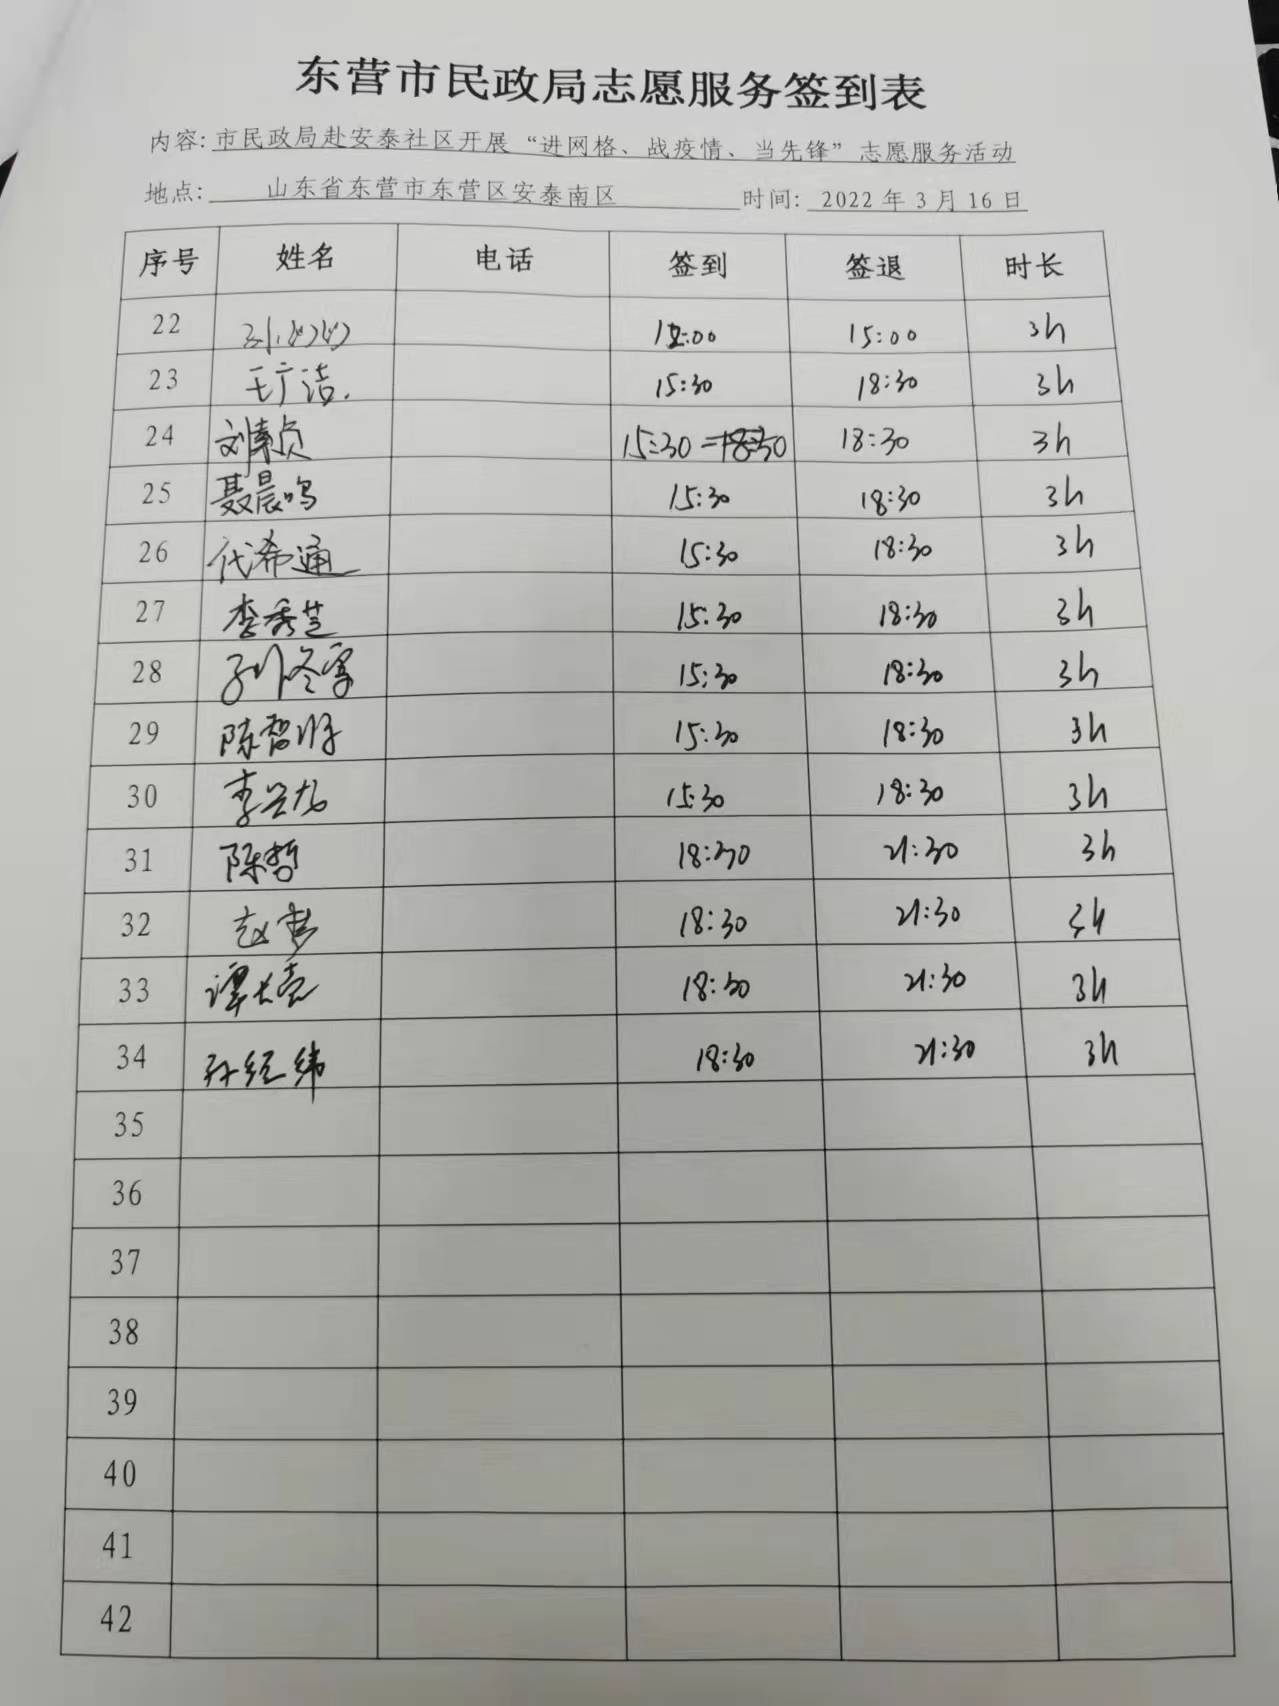 东营市民政局志愿服务签到表
内容: 市民政局赴安泰社区开展“进网格、战疫情、当先锋”志愿服务活动
地点: 山东省东营市东营区安泰南区 时间: 2022 年 3 月 16 日
序号 姓名 电话 签到 签退 时长
22 12:00 15:00 3h
23 王广洁 15:30 18:30 3h
24 刘素贞 15:30 18:30 3h
25 聂晨鸣 15:30 18:30 3h
26 代希通 15:30 18:30 3h
27 李秀芝 15:30 18:30 3h
28 孙冬雪 15:30 18:30 3h
29 陈 15:30 18:30 3h
30 李兴龙 15:30 18:30 3h
31 陈哲 18:30 21:30 3h
32 赵梦 18:30 21:30 3h
33 谭大亮 18:30 21:30 3h
34 孙经纬 18:30 21:30 3h
35
36
37
38
39
40
41
42